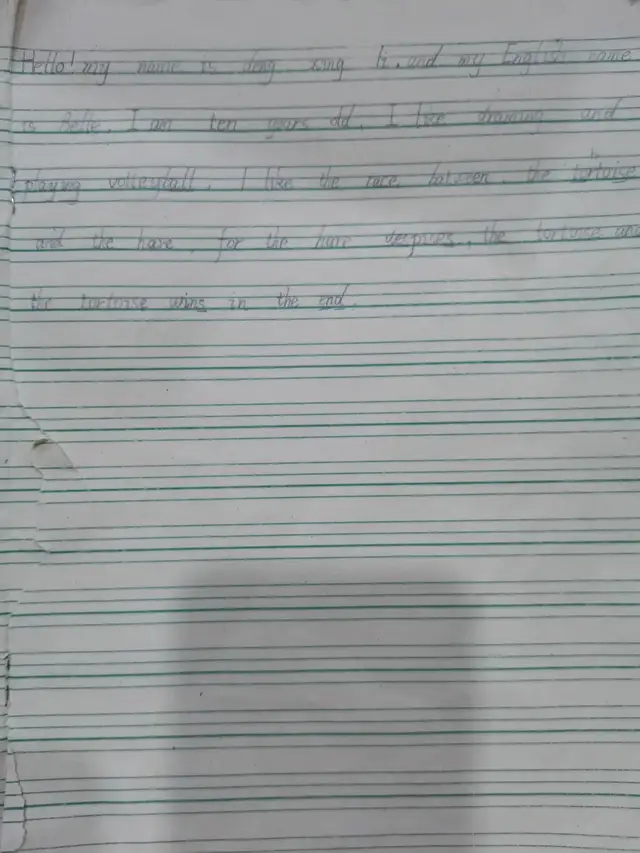 Hello! my name is deng xing li. and my English name
is Belle. I am ten years old. I like drawing and
playing volleyball. I like the race between the tortoise
and the hare, for the hare despises, the tortoise and
the tortoise wins in the end.